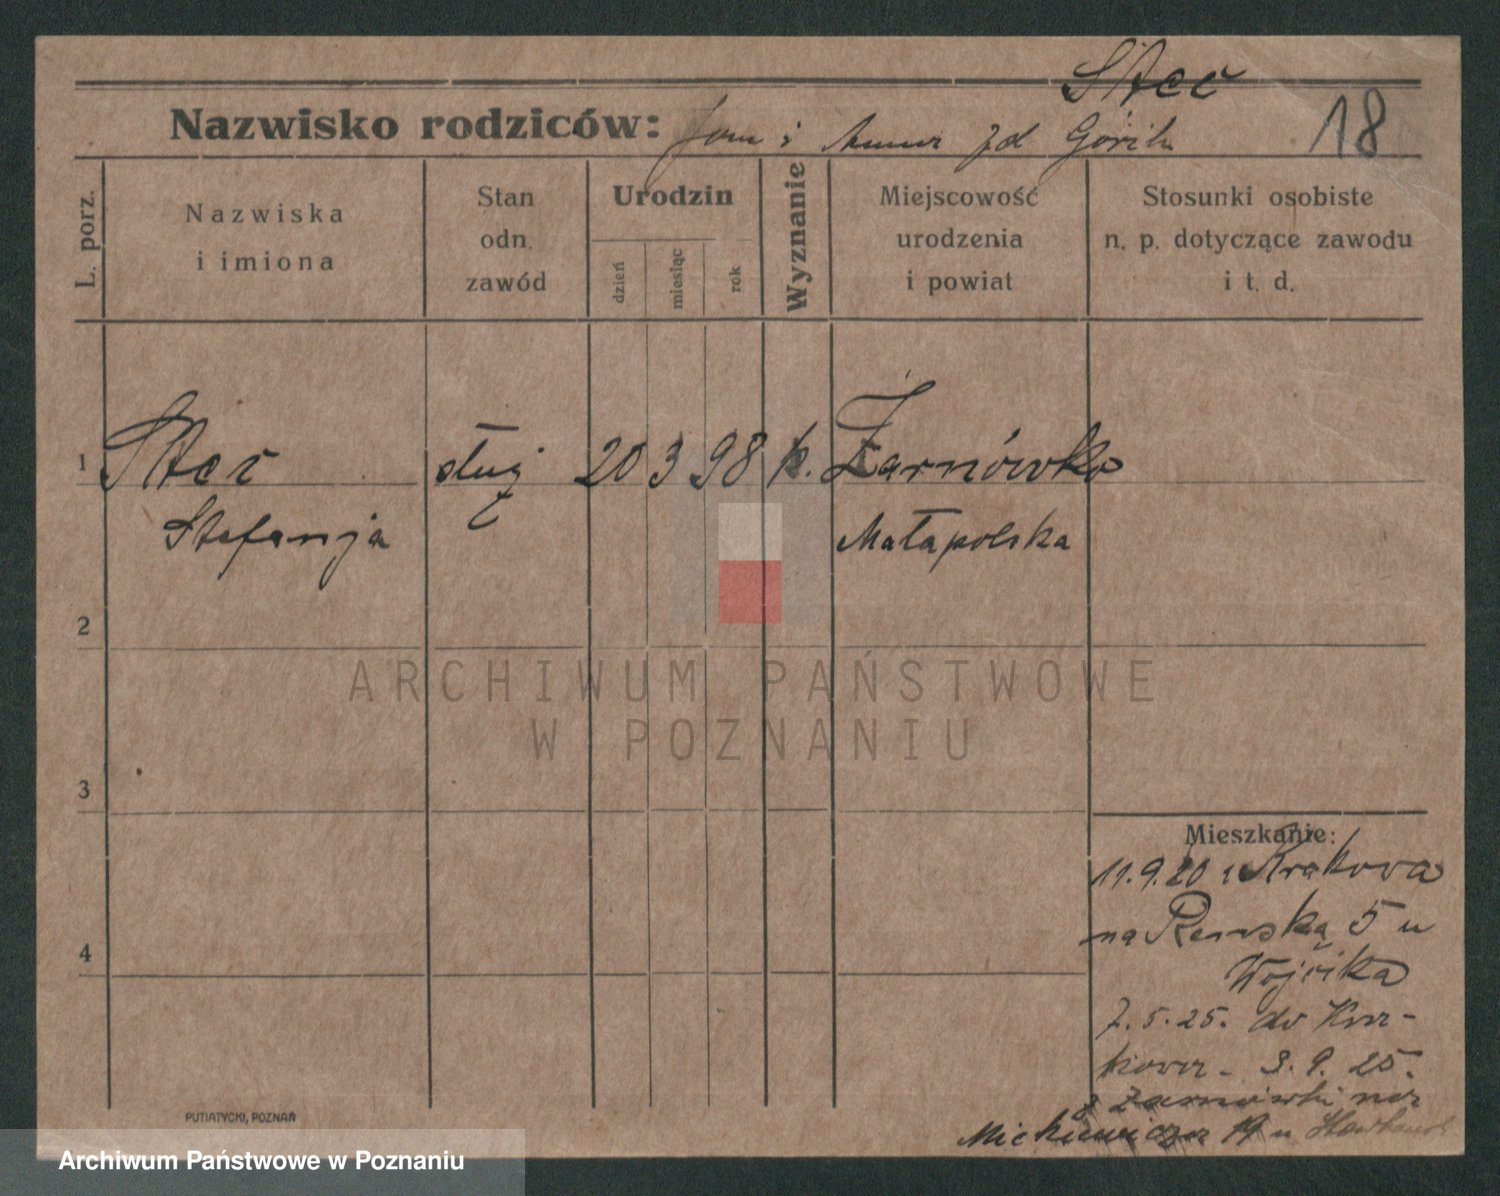 Stec
Nazwisko rodziców: Jan i Anna zd 18
L. porz.
Nazwiska
i imiona
Stan
odn.
zawód
Urodzin
dzień
miesiąc
rok
Wyznanie
Miejscowość
urodzenia
i powiat
Stosunki osobiste
n. p. dotyczące zawodu
i t. d.
1 Stec służ 20 3 98 k. Żarnówko
Stefanja Małapolska
2
ARCHIWUM PAŃSTWOWE
W POZNANIU
3
Mieszkanie:
11.9.20 z Krakowa
na 5 u
Wojcika
7.5.25. do Kra-
kowa - 3.9.25.
z Żarnówki na
Mickiewicza 19 u
4
PUTIATYCKI, POZNAŃ
Archiwum Państwowe w Poznaniu